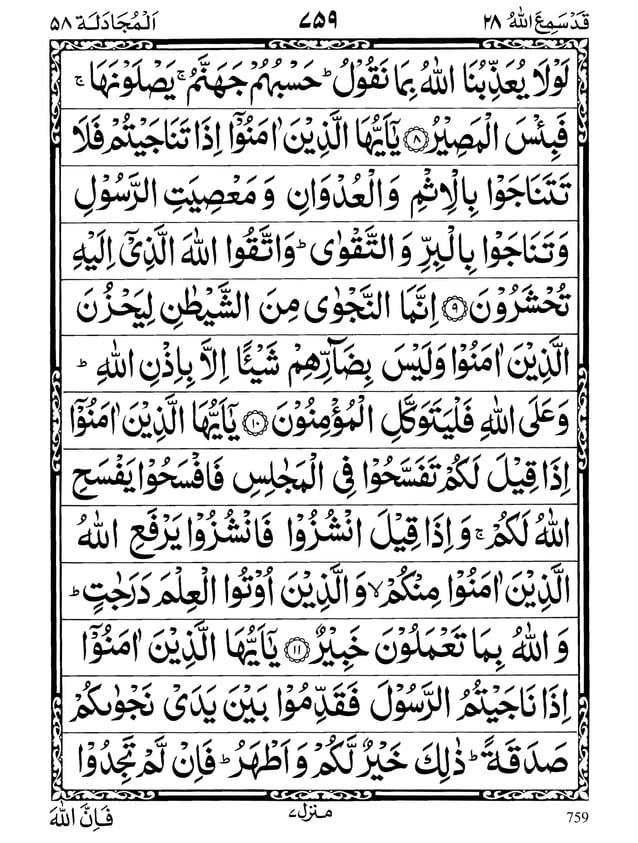 قَدْ سَمِعَ اللّٰهُ ٢٨ ٧٥٩ اَلْمُجَادَلَة ٥٨
لَوْلَا يُعَذِّبُنَا اللّٰهُ بِمَا نَقُوْلُ ؕ حَسْبُهُمْ جَهَنَّمُ ۚ يَصْلَوْنَهَا ۚ
فَبِئْسَ الْمَصِيْرُ ۝٨ يٰۤاَيُّهَا الَّذِيْنَ اٰمَنُوْۤا اِذَا تَنَاجَيْتُمْ فَلَا
تَتَنَاجَوْا بِالْاِثْمِ وَالْعُدْوَانِ وَمَعْصِيَتِ الرَّسُوْلِ
وَتَنَاجَوْا بِالْبِرِّ وَالتَّقْوٰى ؕ وَاتَّقُوا اللّٰهَ الَّذِيْۤ اِلَيْهِ
تُحْشَرُوْنَ ۝٩ اِنَّمَا النَّجْوٰى مِنَ الشَّيْطٰنِ لِيَحْزُنَ
الَّذِيْنَ اٰمَنُوْا وَلَيْسَ بِضَآرِّهِمْ شَيْـًٔا اِلَّا بِاِذْنِ اللّٰهِ ؕ
وَعَلَى اللّٰهِ فَلْيَتَوَكَّلِ الْمُؤْمِنُوْنَ ۝١٠ يٰۤاَيُّهَا الَّذِيْنَ اٰمَنُوْۤا
اِذَا قِيْلَ لَكُمْ تَفَسَّحُوْا فِى الْمَجٰلِسِ فَافْسَحُوْا يَفْسَحِ
اللّٰهُ لَكُمْ ۚ وَاِذَا قِيْلَ انْشُزُوْا فَانْشُزُوْا يَرْفَعِ اللّٰهُ
الَّذِيْنَ اٰمَنُوْا مِنْكُمْ ۙ وَالَّذِيْنَ اُوْتُوا الْعِلْمَ دَرَجٰتٍ ؕ
وَاللّٰهُ بِمَا تَعْمَلُوْنَ خَبِيْرٌ ۝١١ يٰۤاَيُّهَا الَّذِيْنَ اٰمَنُوْۤا
اِذَا نَاجَيْتُمُ الرَّسُوْلَ فَقَدِّمُوْا بَيْنَ يَدَيْ نَجْوٰىكُمْ
صَدَقَةً ؕ ذٰلِكَ خَيْرٌ لَّكُمْ وَاَطْهَرُ ؕ فَاِنْ لَّمْ تَجِدُوْا
759 منزل ٧ فَاِنَّ اللّٰهَ